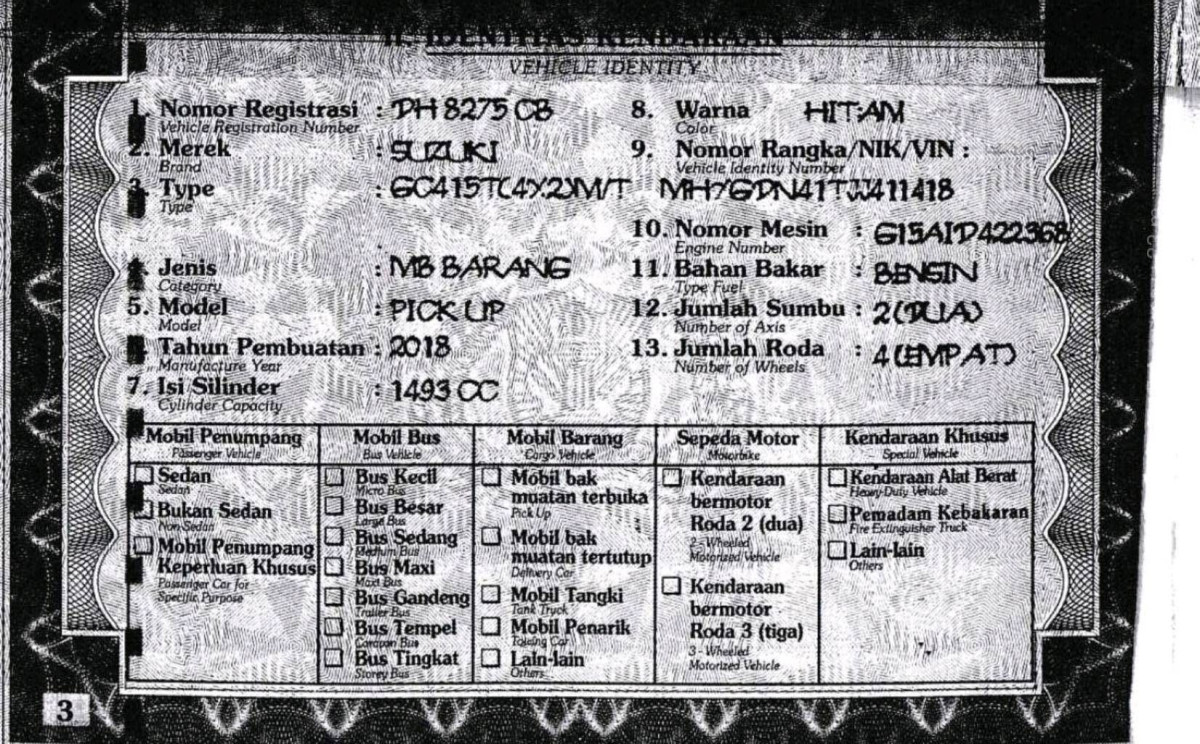 II. IDENTITAS KENDARAAN
VEHICLE IDENTITY
1. Nomor Registrasi : DH 8275 CB
Vehicle Registration Number
2. Merek : SUZUKI
Brand
3. Type : GC415T(4X2)M/T
Type
4. Jenis : MB BARANG
Category
5. Model : PICK UP
Model
6. Tahun Pembuatan : 2018
Manufacture Year
7. Isi Silinder : 1493 CC
Cylinder Capacity
8. Warna HITAM
Color
9. Nomor Rangka/NIK/VIN :
Vehicle Identity Number
MH7GDN41TJJ411418
10. Nomor Mesin : G15AID422368
Engine Number
11. Bahan Bakar : BENSIN
Type Fuel
12. Jumlah Sumbu : 2 (DUA)
Number of Axis
13. Jumlah Roda : 4 (EMPAT)
Number of Wheels
Mobil Penumpang
Passenger Vehicle
Sedan
Sedan
Bukan Sedan
Non-Sedan
Mobil Penumpang
Keperluan Khusus
Passenger Car for
Specific Purpose
Mobil Bus
Bus Vehicle
Bus Kecil
Micro Bus
Bus Besar
Large Bus
Bus Sedang
Medium Bus
Bus Maxi
Maxi Bus
Bus Gandeng
Trailer Bus
Bus Tempel
Caravan Bus
Bus Tingkat
Storey Bus
Mobil Barang
Cargo Vehicle
Mobil bak
muatan terbuka
Pick Up
Mobil bak
muatan tertutup
Delivery Car
Mobil Tangki
Tank Truck
Mobil Penarik
Towing Car
Lain-lain
Others
Sepeda Motor
Motorbike
Kendaraan
bermotor
Roda 2 (dua)
2 - Wheeled
Motorized Vehicle
Kendaraan
bermotor
Roda 3 (tiga)
3 - Wheeled
Motorized Vehicle
Kendaraan Khusus
Special Vehicle
Kendaraan Alat Berat
Heavy-Duty Vehicle
Pemadam Kebakaran
Fire Extinguisher Truck
Lain-lain
Others
3